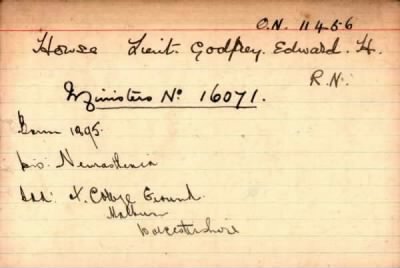 O.N. 11456
Howse Lieut. Godfrey. Edward. H.
R.N.
Ministers No 16071.
Born 1895.
Dis: Neurasthenia
Add: X. College Ground.
Malvern
Worcestershire